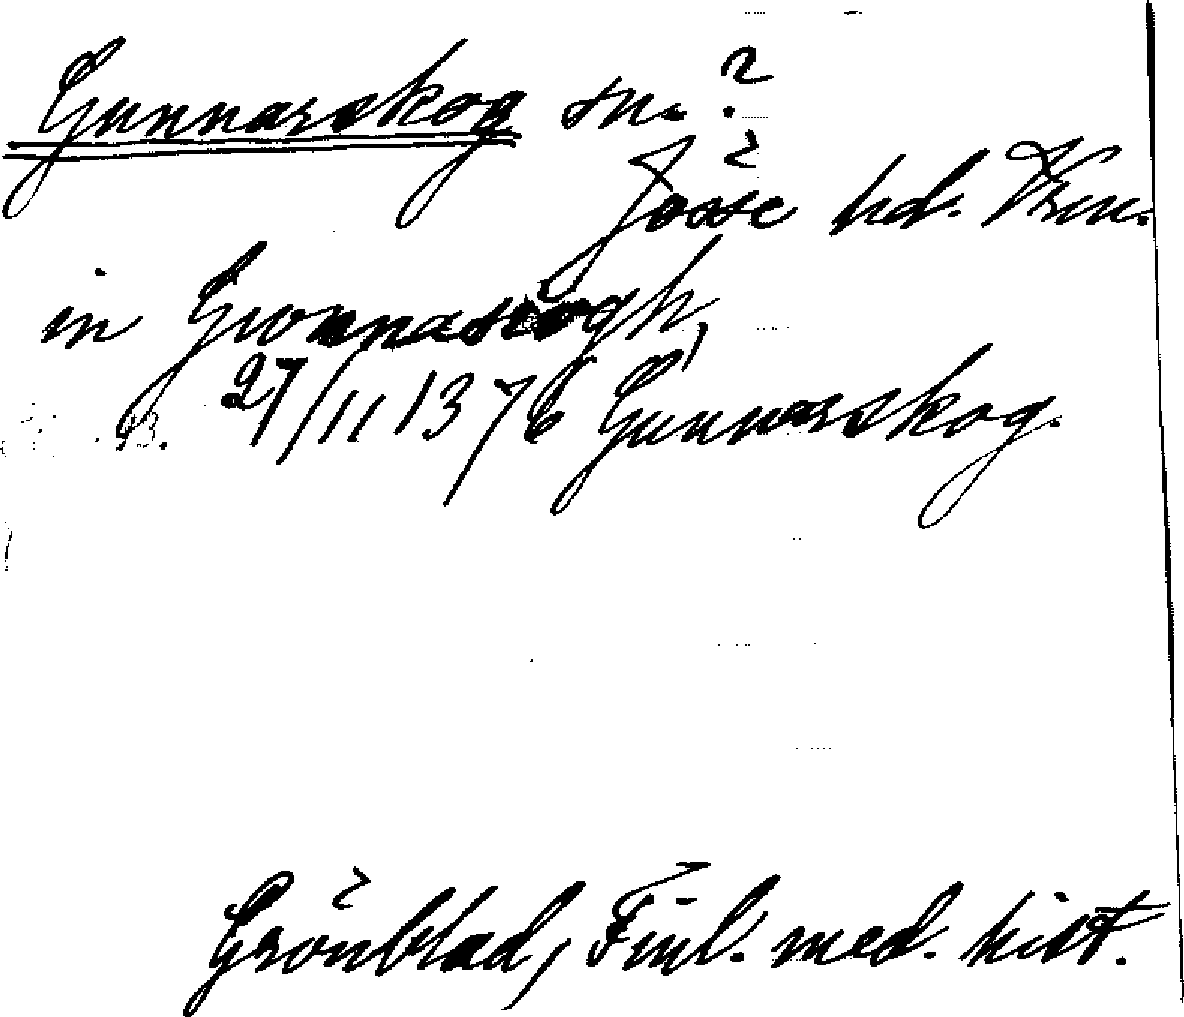 Gunnarskog sn. ?
Jösse hd. Vrm.
in Gwnnaskogh,
27/11 1376 Gunnarskog.
Grönblad, Finl. med. hist.